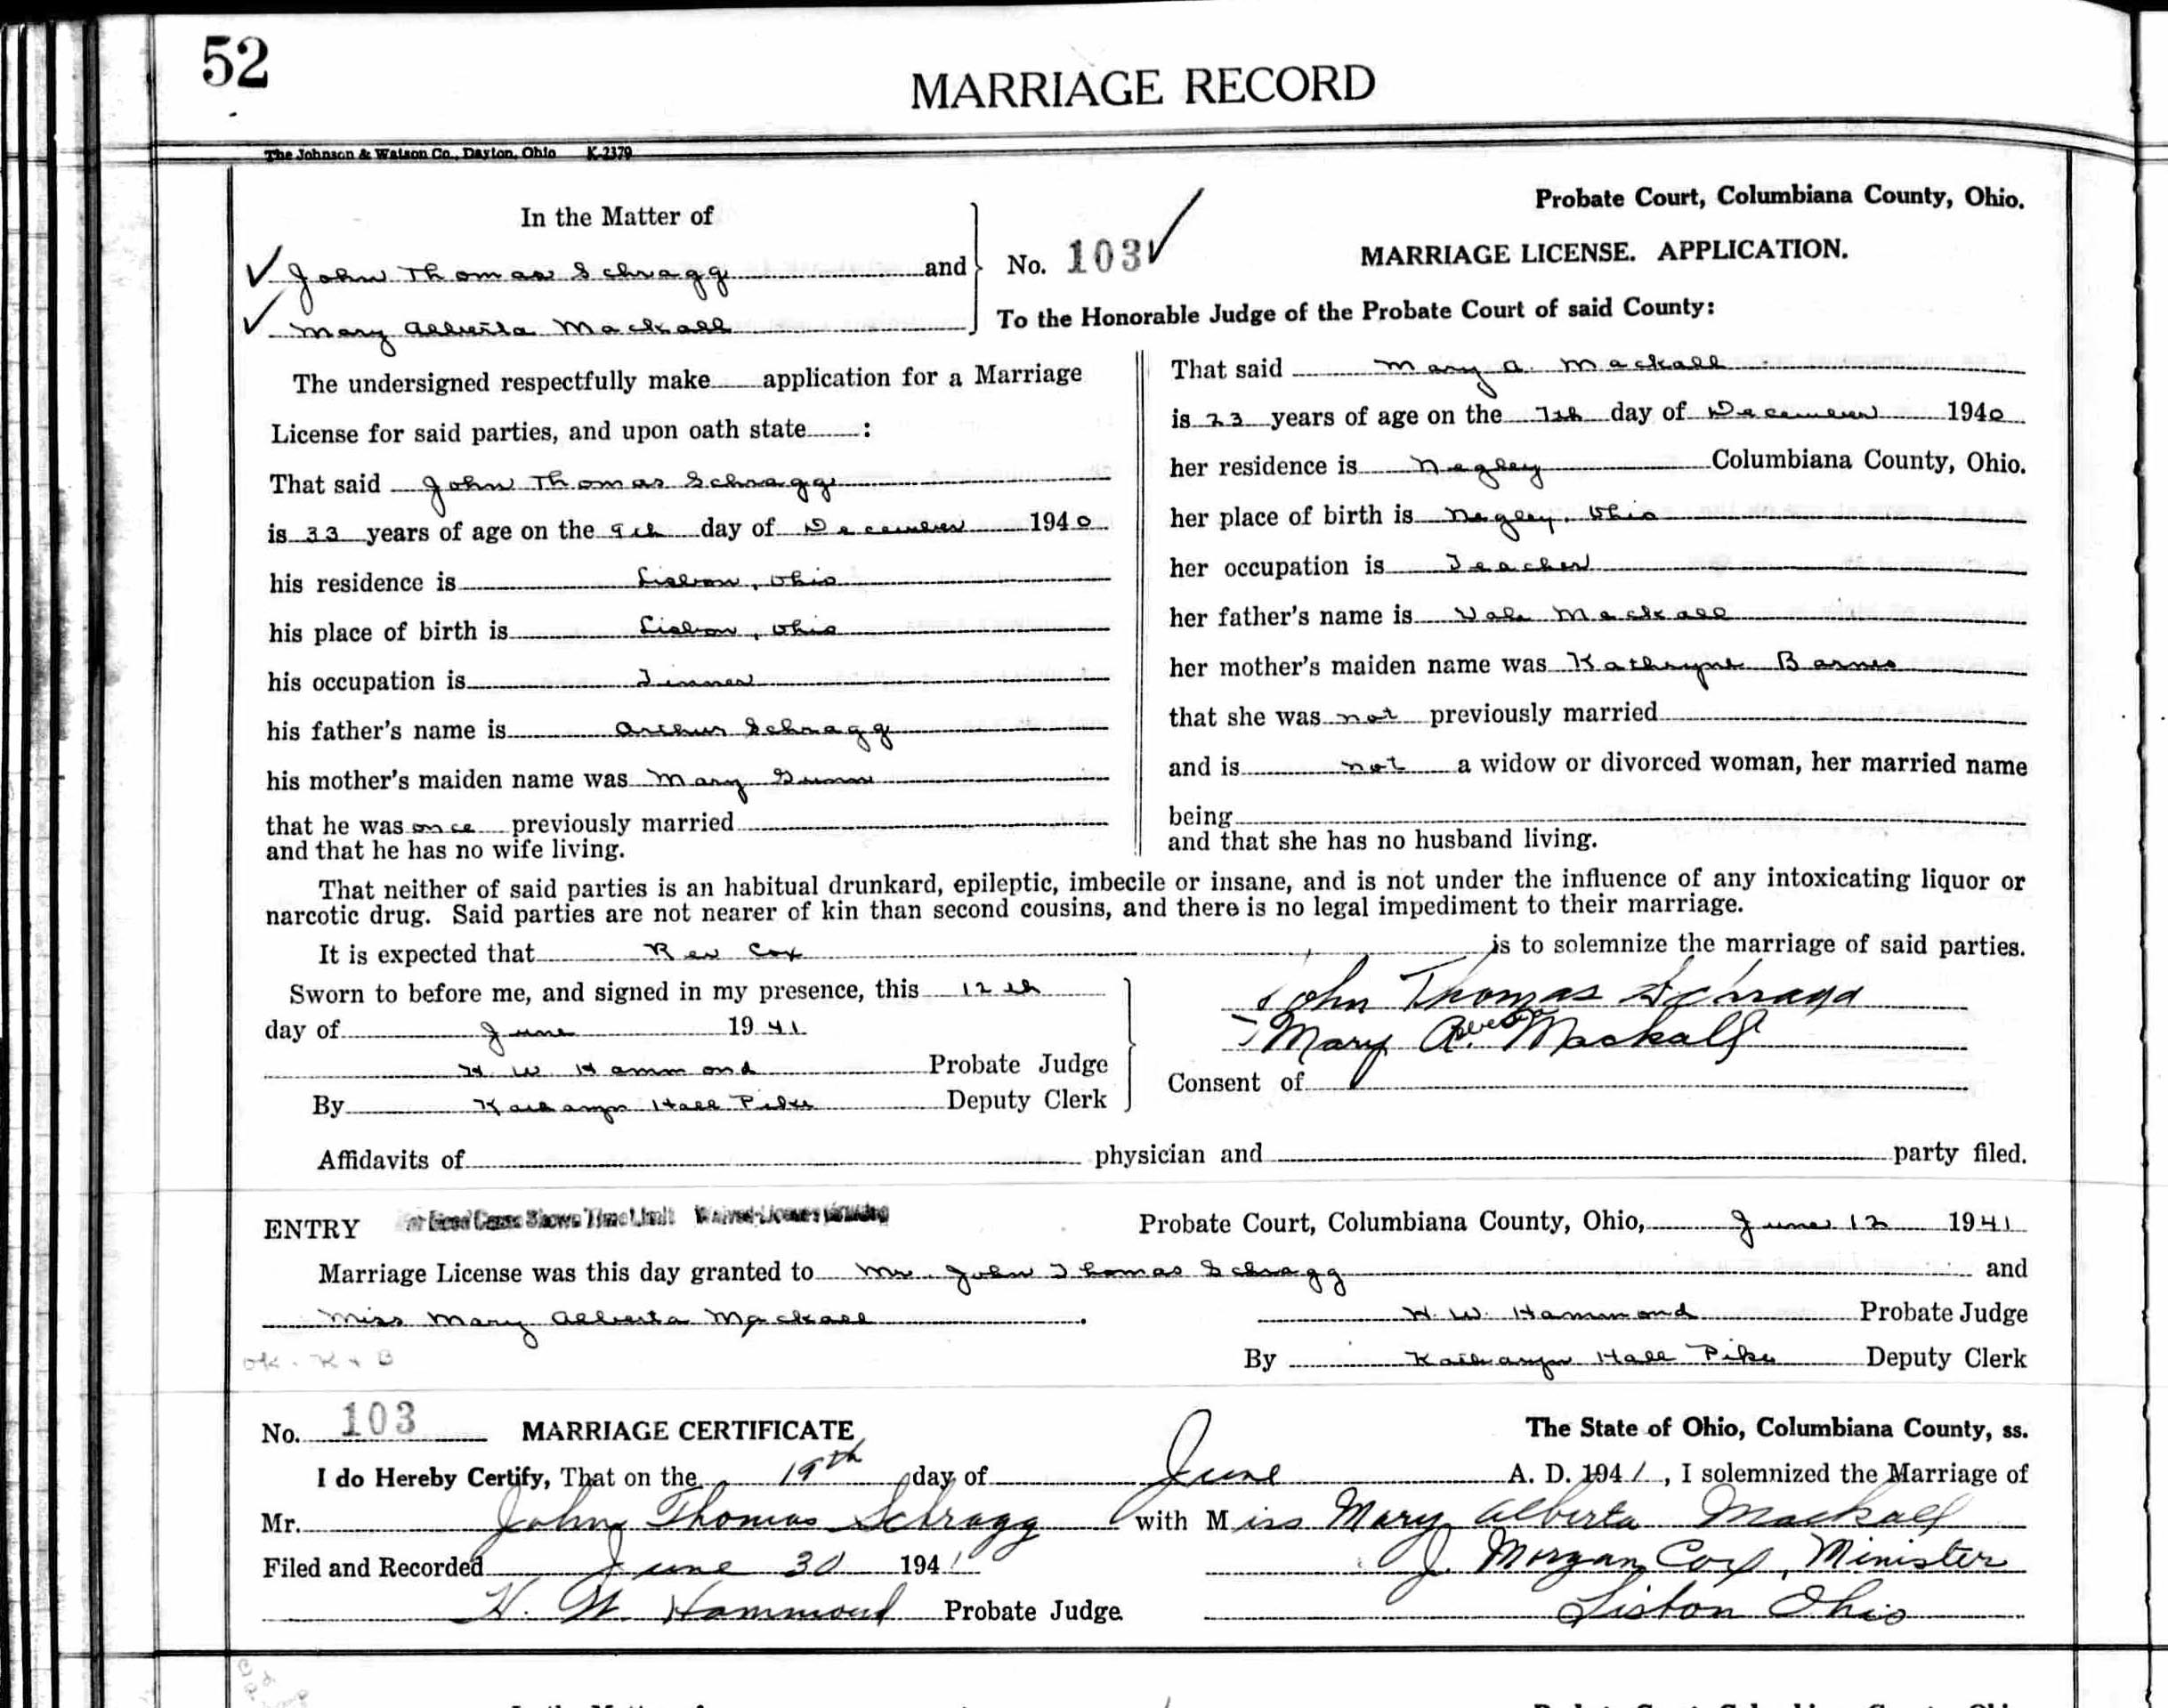 52
MARRIAGE RECORD
The Johnson & Watson Co., Dayton, Ohio K-2379
In the Matter of
John Thomas Schragg and
Mary Alberta Mackall
No. 103
Probate Court, Columbiana County, Ohio.
MARRIAGE LICENSE. APPLICATION.
To the Honorable Judge of the Probate Court of said County:
The undersigned respectfully make application for a Marriage
License for said parties, and upon oath state :
That said John Thomas Schragg
is 33 years of age on the 9th day of December 1940
his residence is Lisbon, Ohio
his place of birth is Lisbon, Ohio
his occupation is Tinner
his father's name is Arthur Schragg
his mother's maiden name was Mary Gunn
that he was once previously married
and that he has no wife living.
That said Mary A. Mackall
is 23 years of age on the 7th day of December 1940
her residence is Negley Columbiana County, Ohio.
her place of birth is Negley, Ohio
her occupation is Teacher
her father's name is Vale Mackall
her mother's maiden name was Kathryne Barnes
that she was not previously married
and is not a widow or divorced woman, her married name
being
and that she has no husband living.
That neither of said parties is an habitual drunkard, epileptic, imbecile or insane, and is not under the influence of any intoxicating liquor or
narcotic drug. Said parties are not nearer of kin than second cousins, and there is no legal impediment to their marriage.
It is expected that Rev Cox is to solemnize the marriage of said parties.
Sworn to before me, and signed in my presence, this 12th
day of June 1941
H. W. Hammond Probate Judge
By Katharyn Hall Pike Deputy Clerk
John Thomas Schragg
Mary Alberta Mackall
Consent of
Affidavits of physician and party filed.
ENTRY Good Cause Shown Time Limit Waived License
Probate Court, Columbiana County, Ohio, June 12 1941
Marriage License was this day granted to Mr. John Thomas Schragg and
Miss Mary Alberta Mackall.
H. W. Hammond Probate Judge
ok. K + B
By Katharyn Hall Pike Deputy Clerk
No. 103 MARRIAGE CERTIFICATE The State of Ohio, Columbiana County, ss.
I do Hereby Certify, That on the 19th day of June A. D. 1941, I solemnized the Marriage of
Mr. John Thomas Schragg with Miss Mary Alberta Mackall
Filed and Recorded June 30 1941 J. Morgan Cox, Minister
H. W. Hammond Probate Judge Lisbon Ohio